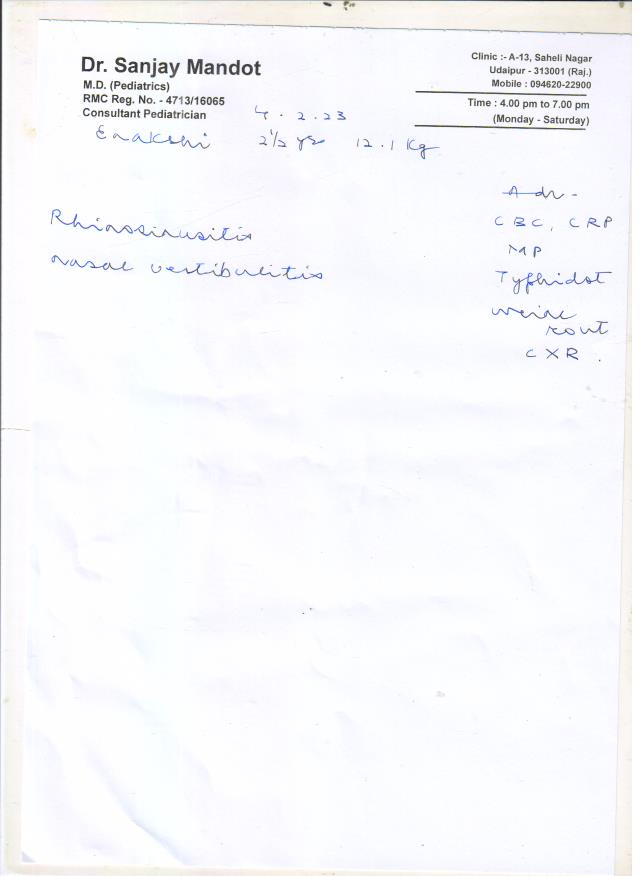 Dr. Sanjay Mandot
M.D. (Pediatrics)
RMC Reg. No. - 4713/16065
Consultant Pediatrician
Clinic :- A-13, Saheli Nagar
Udaipur - 313001 (Raj.)
Mobile : 094620-22900
Time : 4.00 pm to 7.00 pm
(Monday - Saturday)
4.2.23
Enakshi 2 1/2 yrs 12.1 Kg
Rhinosinusitis
nasal vestibulitis
Adv -
CBC, CRP
MP
Typhidot
urine
rout
CXR.